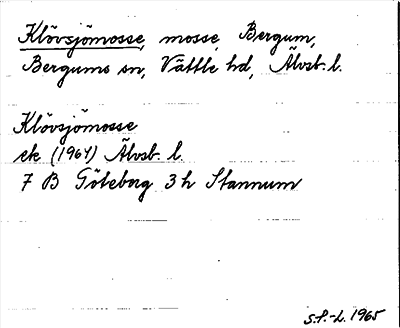 Klövsjömosse, mosse, Bergum,
Bergums sn, Vättle hd, Älvsb. l.
Klövsjömosse
ek (1964) Älvsb. l.
7 B Göteborg 3 h Stannum
S.P.-L. 1965